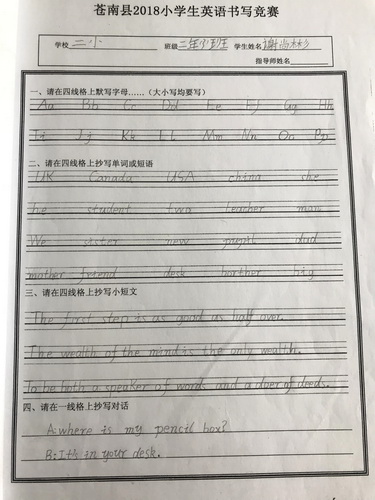 苍南县2018小学生英语书写竞赛
学校 二小 班级 二年 班 学生姓名 谢尚彬
指导师姓名
一、请在四线格上默写字母……（大小写均要写）
Aa Bb Cc Dd Ee Ff Gg Hh
Ii Jj Kk Ll Mm Nn Oo Pp
二、请在四线格上抄写单词或短语
UK Canada USA china she
he student two teacher man
We sister new pupil dad
mother friend desk borther big
三、请在四线格上抄写小短文
The first step is as good as half over.
The wealth of the mind is the only wealth.
To be both a speaker of words and a doer of deeds.
四、请在一线格上抄写对话
A: where is my pencil box?
B: It's in your desk.